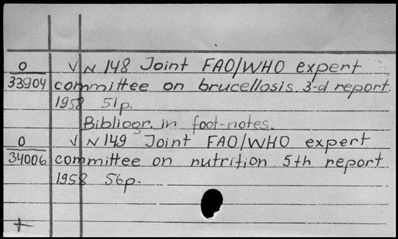 O V N 148 Joint FAO/WHO expert
33904 committee on brucellosis 3-d report.
1958 51p.
Bibliogr. in foot-notes.
O V N 149 Joint FAO/WHO expert
34006 committee on nutrition 5th report
1958 56p.